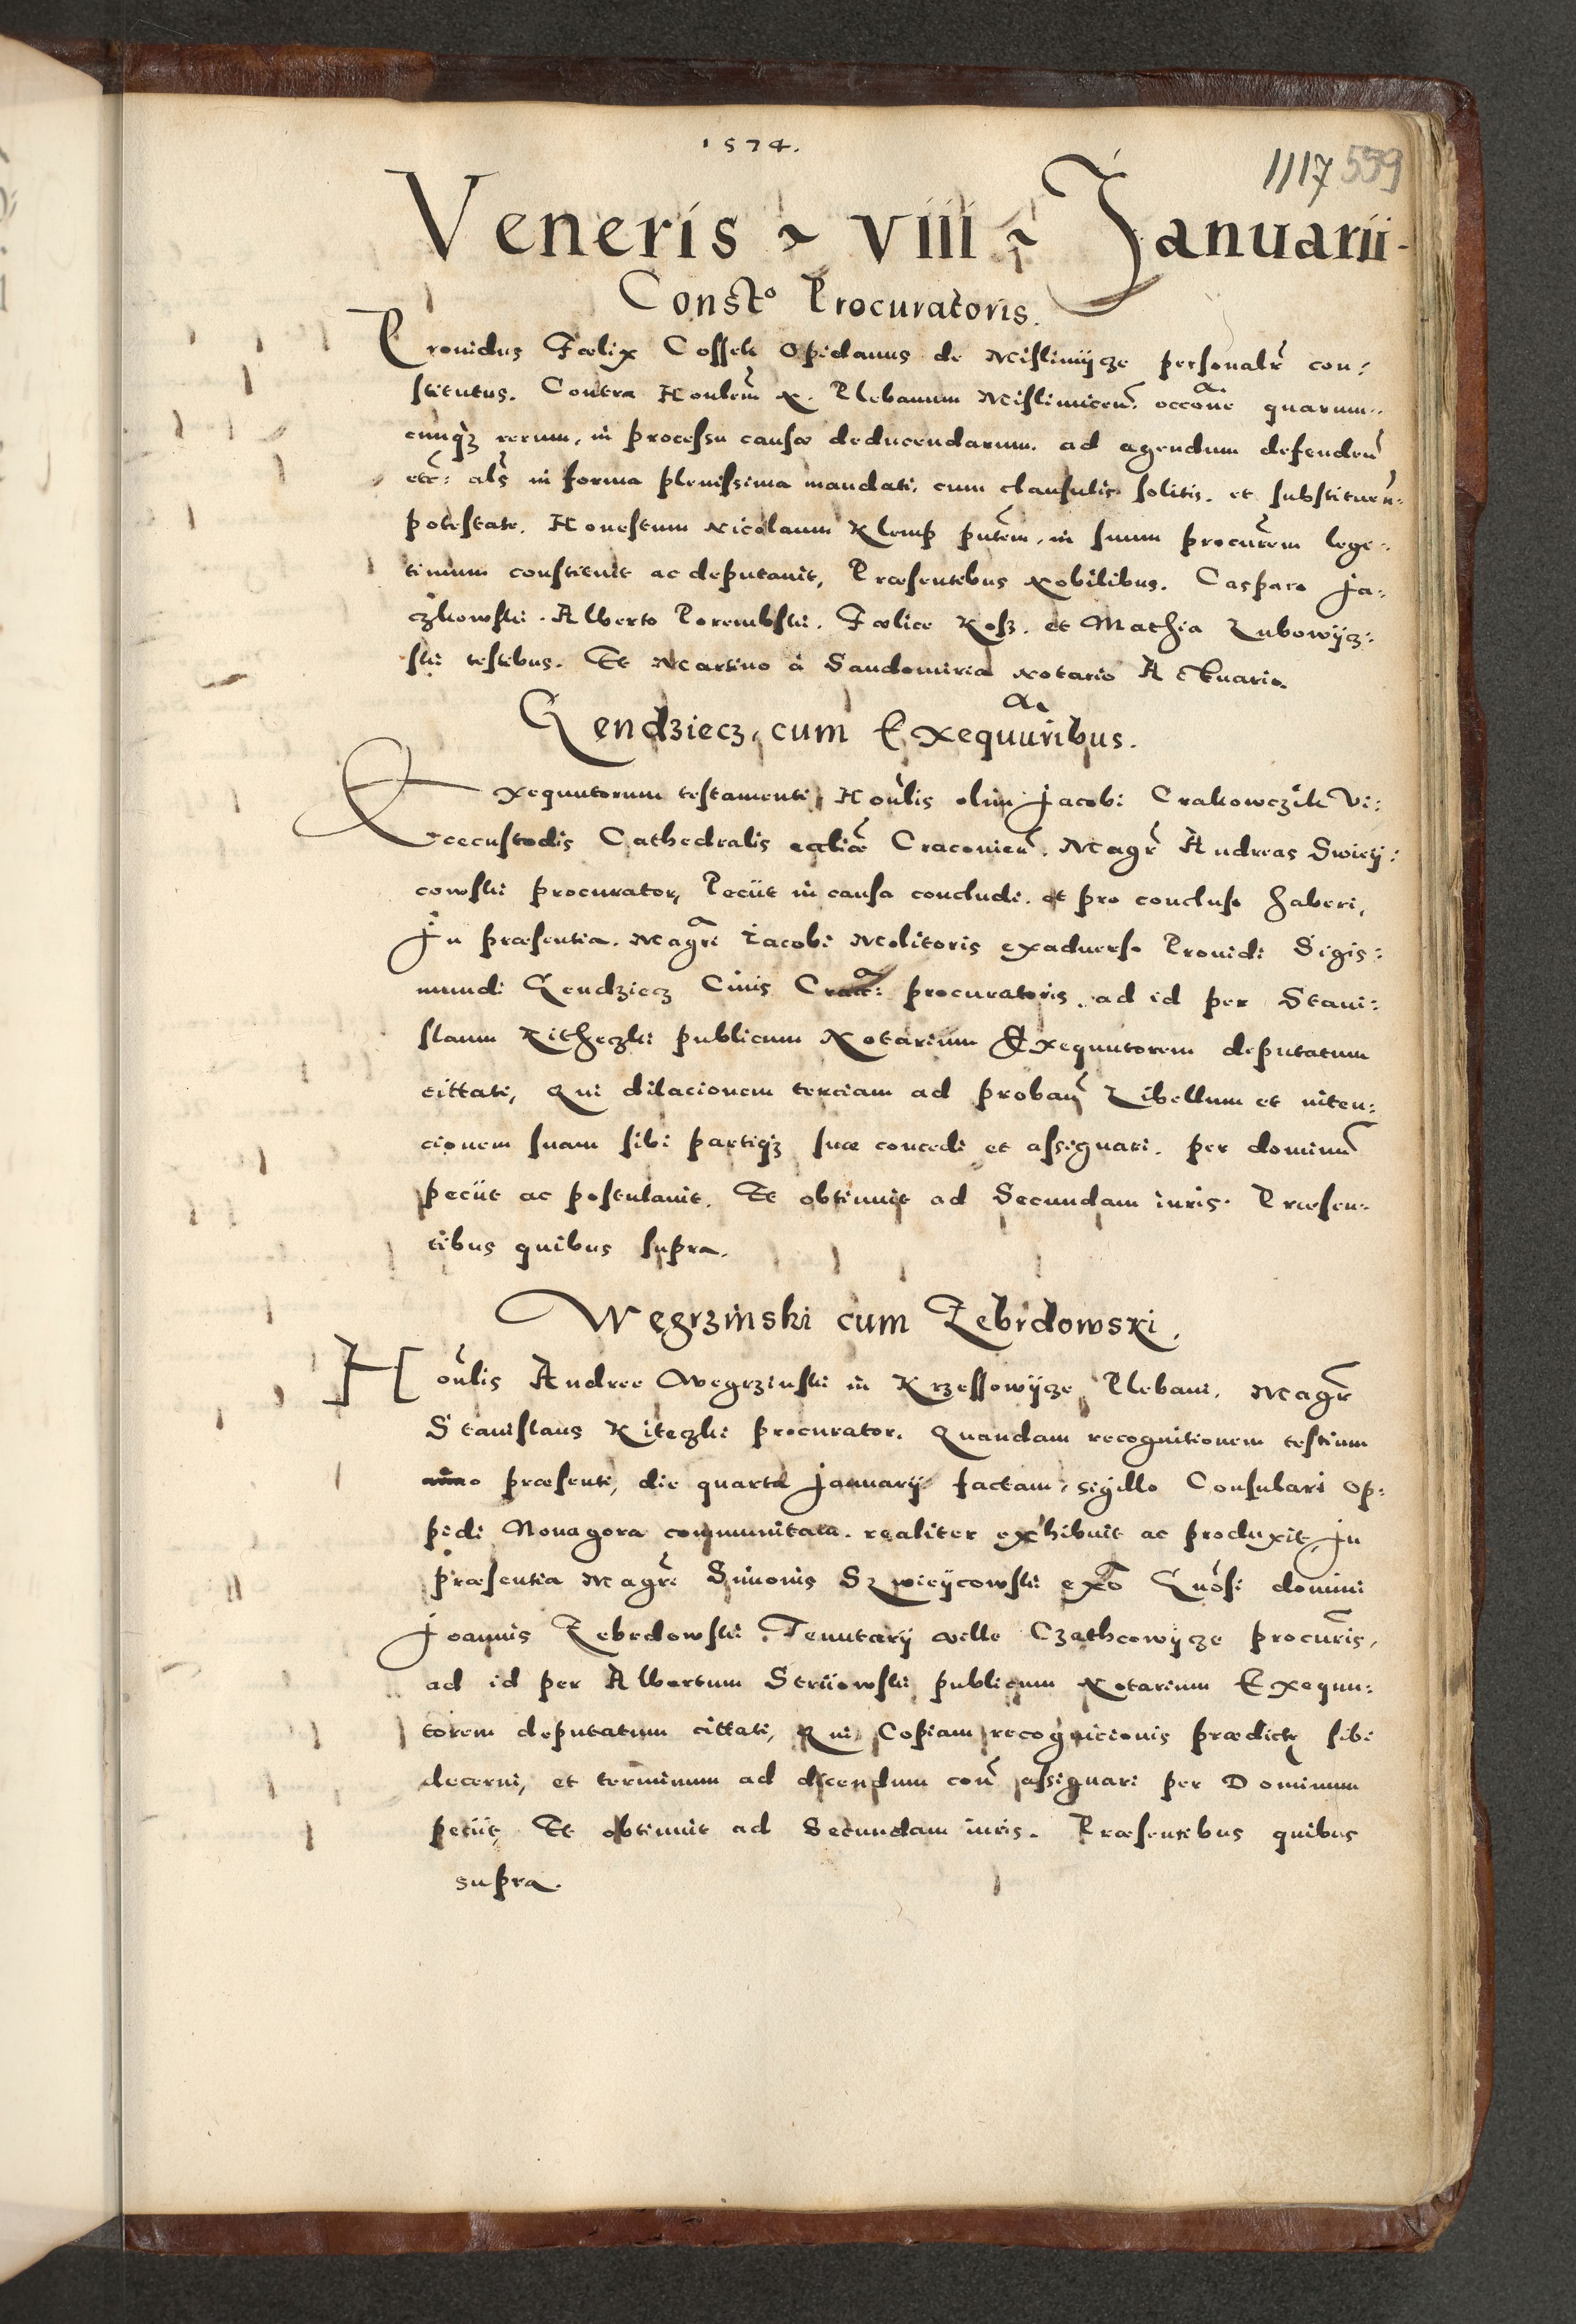 1574.
1117 559
Veneris ~ viii ~ Januarii
Constº Procuratoris.
Prouidus Fœlix Cossek Opidanus de Mislimijcze personalr con-
stitutus. Contra Honlem N. Plebanum Mislimicen. occone quarum-
cunqz rerum, in processu causæ deducendarum. ad agendum defenden
etc: als in forma plenissima mandati, cum clausulis solitis. et substituen-
potestate. Honestum Nicolaum Klemp pntem, in suum procurem lege-
timum constituit ac deputauit, Præsentibus Nobilibus. Casparo Ja-
czkowski. Alberto Porembski. Fœlice Kosz. et Mathia Lubowijcz-
ski testibus. Et Martino à Sandomiria Notario Actuario.
Gendziecz, cum Exequuribus.
Exequutorum testamenti Honlis olim Jacobi Crakowczik Vi-
cecustodis Cathedralis eccliæ Cracouien. Magr Andreas Swiey-
cowski procurator, Peciit in causa concludi. et pro concluso haberi,
In præsentia. Magri Iacobi Molitoris exaduerso Prouidi Sigis-
mundi Gendziecz Ciuis Crac: procuratoris, ad id per Stani-
slaum Kitheczki publicum Notarium Exequutorem deputatum
cittati, Qui dilacionem terciam ad proban Libellum et niten-
cionem suam sibi partiqz suæ concedi et assignari. per dominu
peciit ac postulauit. Et obtinuit ad Secundam iuris. Præsen-
tibus quibus supra.
Wegrzinski cum Zebrdowski.
Honlis Andree Wegrzinski in Krzessowijcze Plebani. Magr
Stanislaus Kiteczki procurator. Quandam recognitionem testium
anno præsenti, die quarta Januarij factam, sigillo Consulari Op-
pidi Nouagora communitam. realiter exhibuit ac produxit, In
præsentia Magri Simonis Szwieijcowski exo Gnosi domini
Joannis Zebrdowski Tenutarij ville Czathcowijcze procuris,
ad id per Albertum Striiowski publicum Notarium Exequu-
torem deputatum cittati, Qui Copiam recognicionis prædictę sibi
decerni, et terminum ad dicendum con assignari per Dominum
peciit, Et obtinuit ad Secundam iuris. Præsentibus quibus
supra.